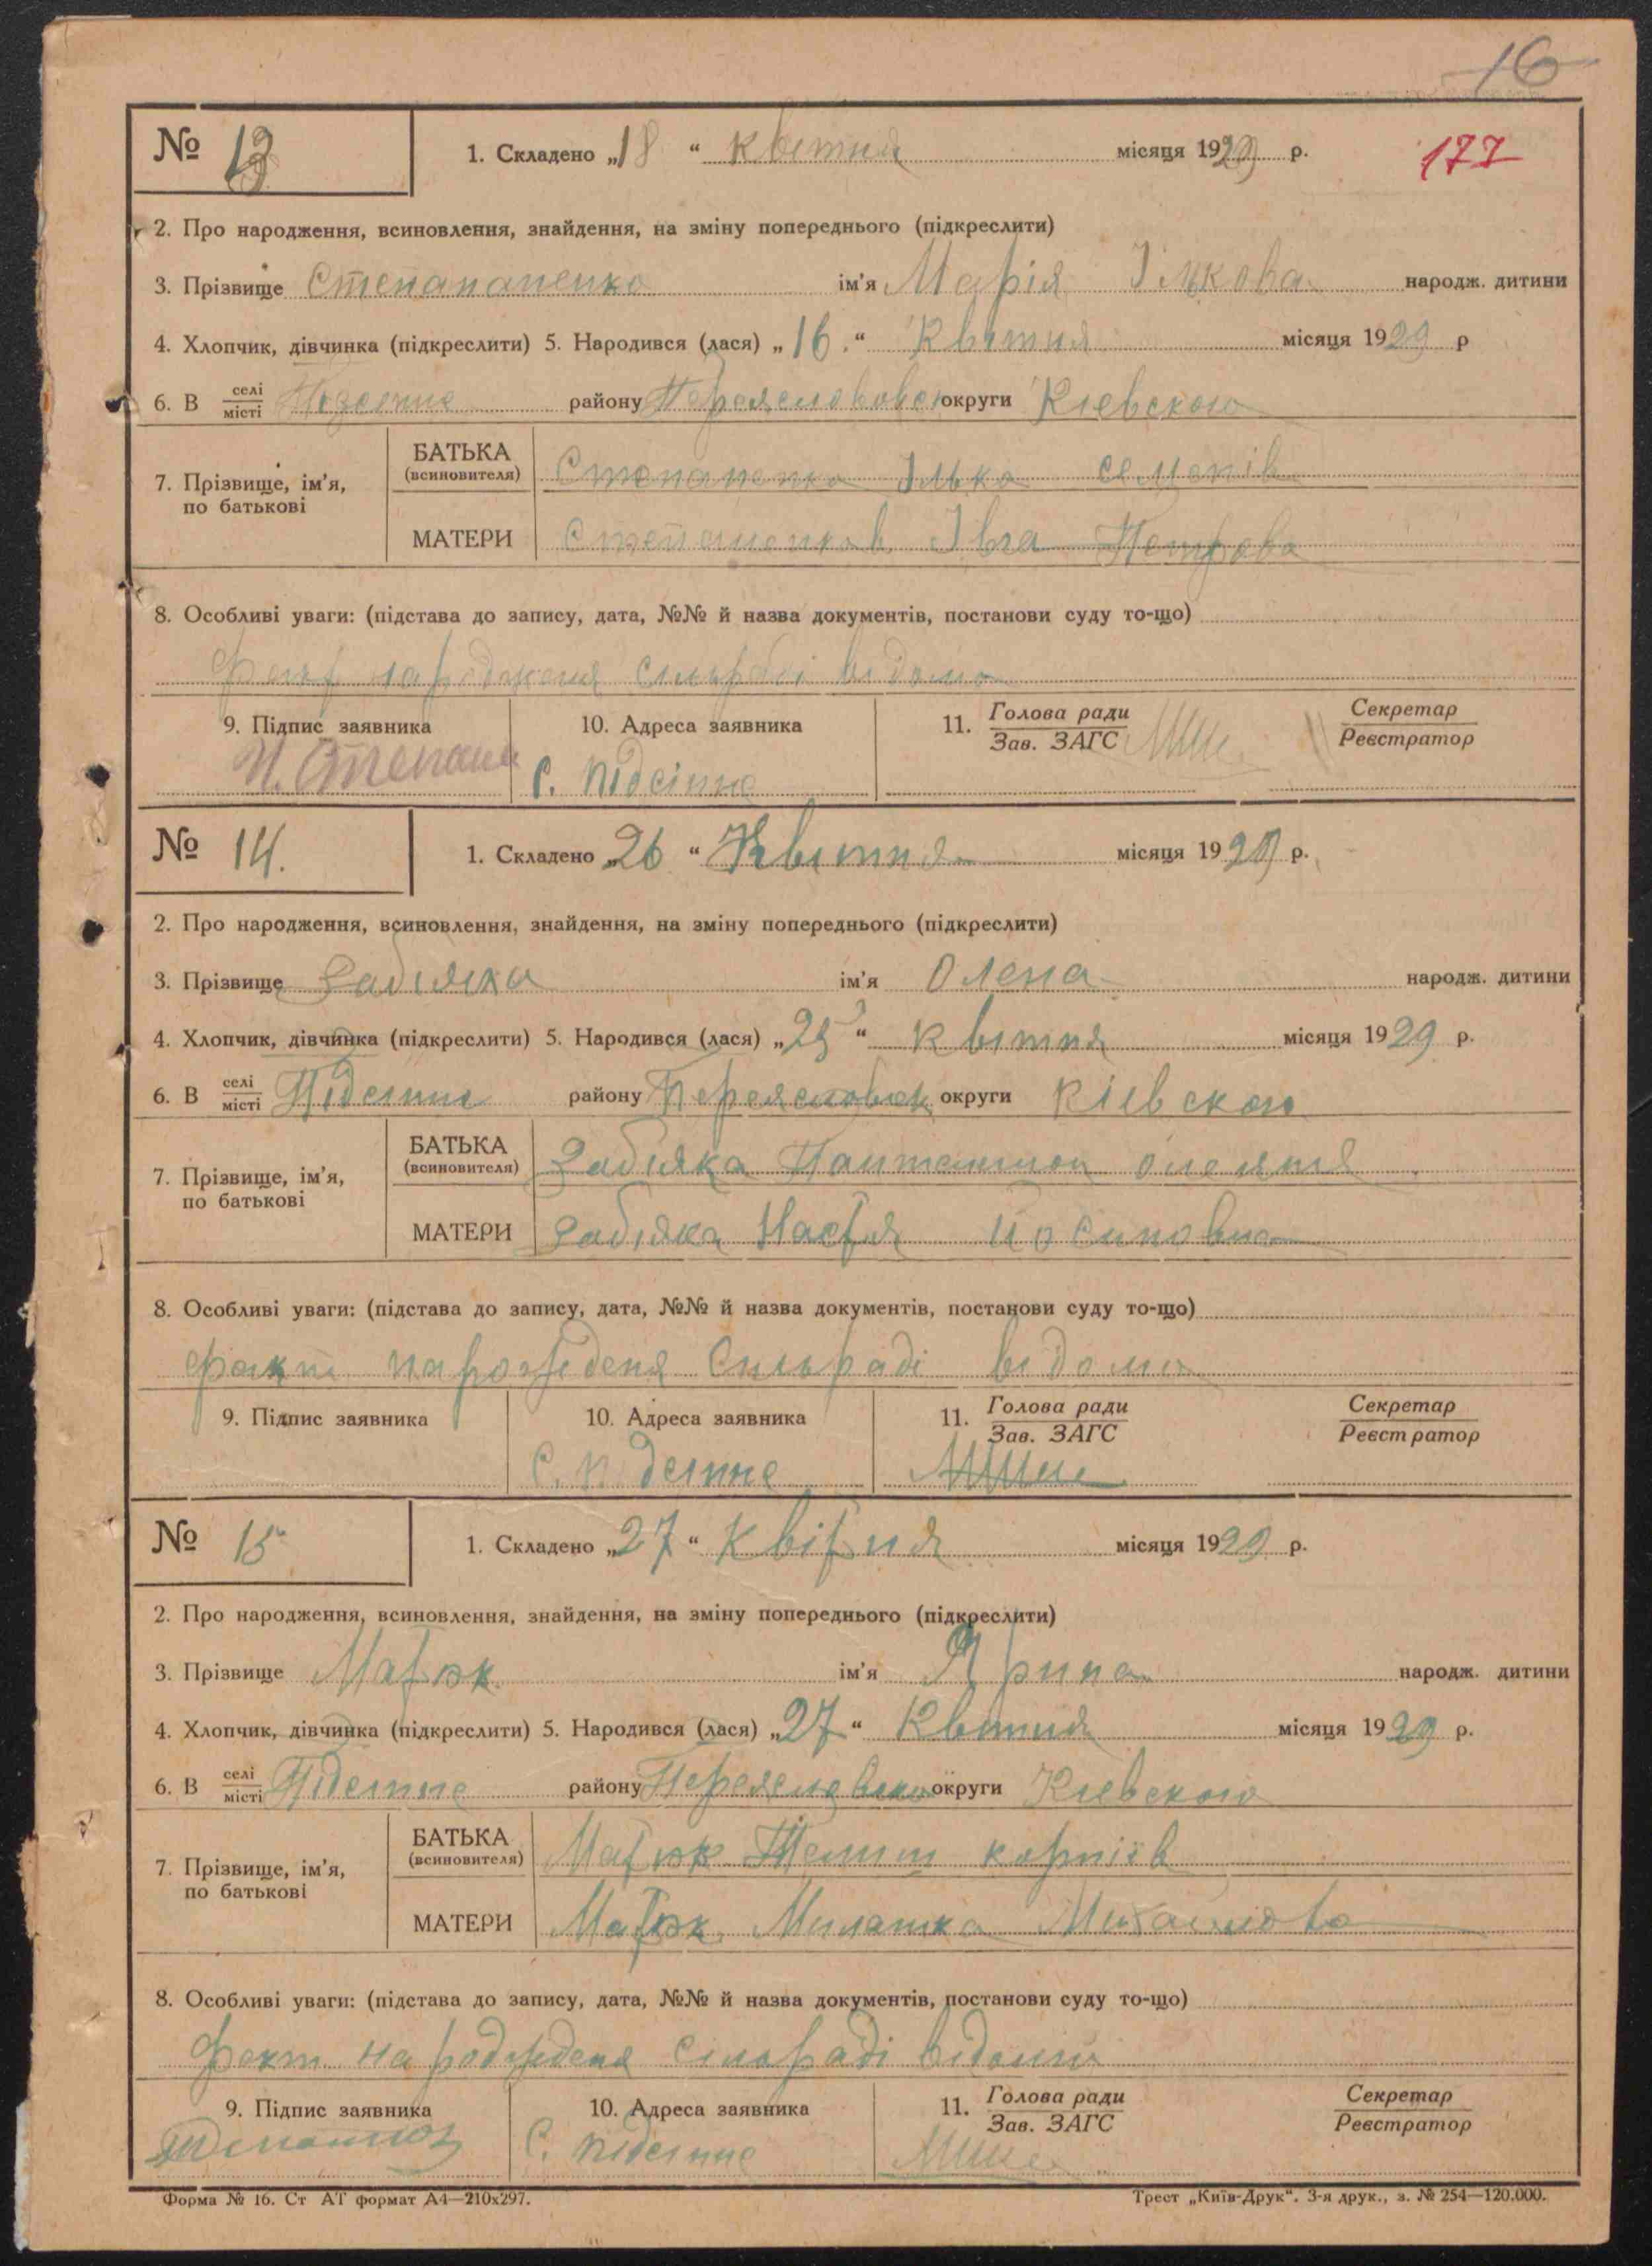 16
№ 13 1. Складено „18“ Квітня місяця 1929 р. 177
2. Про народження, всиновлення, знайдення, на зміну попереднього (підкреслити)
3. Прізвище Степананенко ім'я Марія Ількова народж. дитини
4. Хлопчик, дівчинка (підкреслити) 5. Народився (лася) „16.“ Квітня місяця 1929 р
6. В селі місті району округи Кіевскою
7. Прізвище, ім'я, по батькові
БАТЬКА (всиновителя) Степаненко Ілько Семенів
МАТЕРИ Івга Петрова
8. Особливі уваги: (підстава до запису, дата, №№ й назва документів, постанови суду то-що)
Факт народженя сільраді відомо
9. Підпис заявника 10. Адреса заявника 11. Голова ради Зав. ЗАГС Секретар Реєстратор
с. Підсінне
№ 14. 1. Складено „26“ Квітня місяця 1929 р.
2. Про народження, всиновлення, знайдення, на зміну попереднього (підкреслити)
3. Прізвище Забіяка ім'я Олена народж. дитини
4. Хлопчик, дівчинка (підкреслити) 5. Народився (лася) „25“ Квітня місяця 1929 р.
6. В селі місті Підсінне району округи Кіевскою
7. Прізвище, ім'я, по батькові
БАТЬКА (всиновителя) Забіяка
МАТЕРИ Забіяка Настя Йосиповна
8. Особливі уваги: (підстава до запису, дата, №№ й назва документів, постанови суду то-що)
Факт сільраді відомо
9. Підпис заявника 10. Адреса заявника 11. Голова ради Зав. ЗАГС Секретар Реєстратор
с. Підсінне
№ 15 1. Складено „27“ Квітня місяця 1929 р.
2. Про народження, всиновлення, знайдення, на зміну попереднього (підкреслити)
3. Прізвище Матюк ім'я Ярина народж. дитини
4. Хлопчик, дівчинка (підкреслити) 5. Народився (лася) „27“ Квітня місяця 1929 р.
6. В селі місті Підсінне району округи Кіевскою
7. Прізвище, ім'я, по батькові
БАТЬКА (всиновителя) Матюк корніїв
МАТЕРИ Матюк Милашка Михайлова
8. Особливі уваги: (підстава до запису, дата, №№ й назва документів, постанови суду то-що)
Факт сільраді відомий
9. Підпис заявника 10. Адреса заявника 11. Голова ради Зав. ЗАГС Секретар Реєстратор
с. Підсінне
Форма № 16. Ст АТ формат А4—210х297. Трест „Київ-Друк“. 3-я друк., з. № 254—120.000.